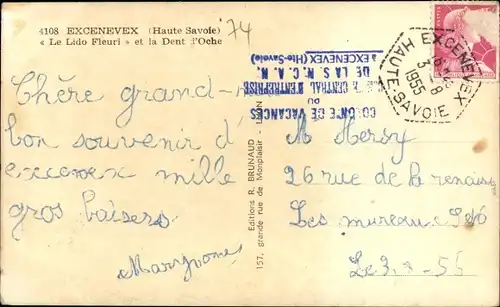 4108 EXCENEVEX (Haute Savoie)
« Le Lido Fleuri » et la Dent d'Oche
74
Chère grand-
bon souvenir d'
excenex mille
gros baisers
Editions R. BRUNAUD
157, grande rue de Monplaisir
COLONIE DE VACANCES
DU
CENTRAL D'ENTREPRISE
DE LA S. N. C. A. N.
à EXCENEVEX (Hte-Savoie)
EXCENEVEX
3 - 8
1955
HAUTE-SAVOIE
M Hersy
26 rue de la renais
Les mureaux
Le 3-8-55